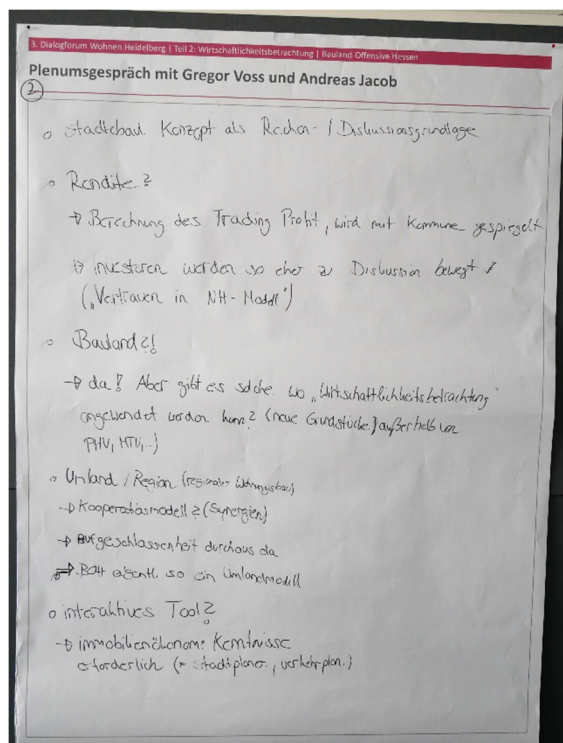 3. Dialogforum Wohnen Heidelberg | Teil 2: Wirtschaftlichkeitsbetrachtung | Bauland-Offensive Hessen
Plenumsgespräch mit Gregor Voss und Andreas Jacob
2
o Städtebaul. Konzept als Rechen- / Diskussionsgrundlage
o Rendite?
→ Berechnung des Trading Profit, wird mit Kommune gespiegelt
→ investoren werden so eher zu Diskussion bewegt!
("Vertrauen in NH-Modell")
o Bauland?!
→ da! Aber gibt es solche wo "Wirtschaftlichkeitsbetrachtung"
angewendet werden kann? (neue Grundstücke) außerhalb von
PHV, MTV,..)
o Umland / Region (regionaler Wohnungsbau)
→ Kooperationsmodell? (Synergien)
→ aufgeschlossenheit durchaus da
→ BOH eigentl. so ein Umlandmodell
o interaktives Tool?
→ immobilienökonom. Kenntnisse
erforderlich (+ stadtplaner., verkehrplan.)